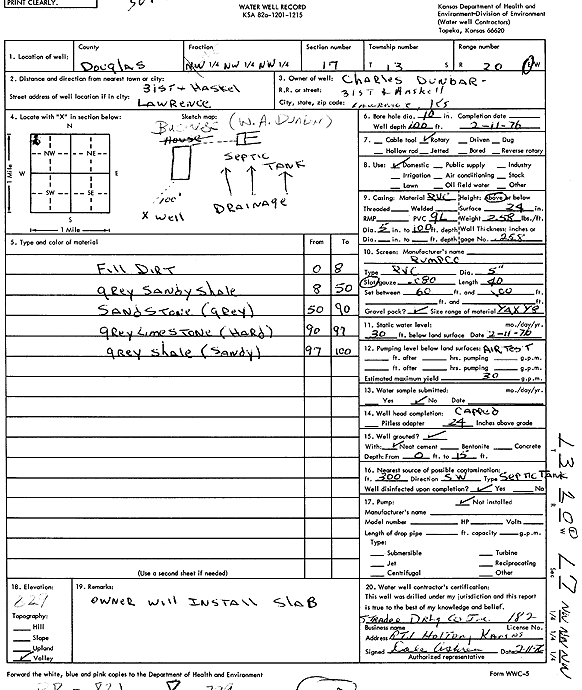 PRINT CLEARLY.
WATER WELL RECORD
KSA 82a-1201-1215
Kansas Department of Health and
Environment-Division of Environment
(Water well Contractors)
Topeka, Kansas 66620
1. Location of well:
County
Douglas
Fraction
NW 1/4 NW 1/4 NW 1/4
Section number
17
Township number
T 13 S
Range number
R 20 E/W
2. Distance and direction from nearest town or city:
31st + Haskel
Street address of well location if in city:
Lawrence
3. Owner of well: Charles Dunbar
R.R. or street: 31st + Haskell
City, state, zip code: Lawrence, Ks
4. Locate with "X" in section below:
N
NW NE
W E
SW SE
S
1 Mile
1 Mile
Sketch map:
House
Septic Tank
Drainage
100'
X well
6. Bore hole dia. 10 in. Completion date
Well depth 100 ft. 2-11-76
7. Cable tool ✓ Rotary Driven Dug
Hollow rod Jetted Bored Reverse rotary
8. Use: ✓ Domestic Public supply Industry
Irrigation Air conditioning Stock
Lawn Oil field water Other
9. Casing: Material PVC Height: Above or below
Threaded Welded Surface 24 in.
RMP PVC GL Weight 2.58 lbs./ft.
Dia. 5 in. to 100 ft. depth Wall Thickness: inches or
Dia. in. to ft. depth gage No. .258
5. Type and color of material
From To
Fill Dirt 0 8
Grey Sandy Shale 8 50
Sandstone (Grey) 50 90
Grey Limestone (Hard) 90 97
Grey Shale (Sandy) 97 100
(Use a second sheet if needed)
10. Screen: Manufacturer's name
Type PVC Dia. 5"
Slot/gauze .080 Length 40
Set between 60 ft. and 100 ft.
ft. and ft.
Gravel pack? ✓ Size range of material
11. Static water level: mo./day/yr.
30 ft. below land surface Date 2-11-76
12. Pumping level below land surfaces: Air Test
ft. after hrs. pumping g.p.m.
ft. after hrs. pumping g.p.m.
Estimated maximum yield 30 g.p.m.
13. Water sample submitted: mo./day/yr.
Yes ✓ No Date
14. Well head completion: Capped
Pitless adapter 24 Inches above grade
15. Well grouted? ✓
With: ✓ Neat cement Bentonite Concrete
Depth: From 0 ft. to 15 ft.
16. Nearest source of possible contamination:
ft. 300 Direction SW Type Septic Tank
Well disinfected upon completion? ✓ Yes No
17. Pump: ✓ Not installed
Manufacturer's name
Model number HP Volts
Length of drop pipe ft. capacity g.p.m.
Type:
Submersible Turbine
Jet Reciprocating
Centrifugal Other
18. Elevation:
Topography:
Hill
Slope
Upland
✓ Valley
19. Remarks:
Owner Will Install Slab
20. Water well contractor's certification:
This well was drilled under my jurisdiction and this report
is true to the best of my knowledge and belief.
Strader Drlg Co Inc. 182
Business name License No.
Address Rt 1 Holton, Kansas
Signed Date 2-11-76
Authorized representative
Forward the white, blue and pink copies to the Department of Health and Environment
Form WWC-5